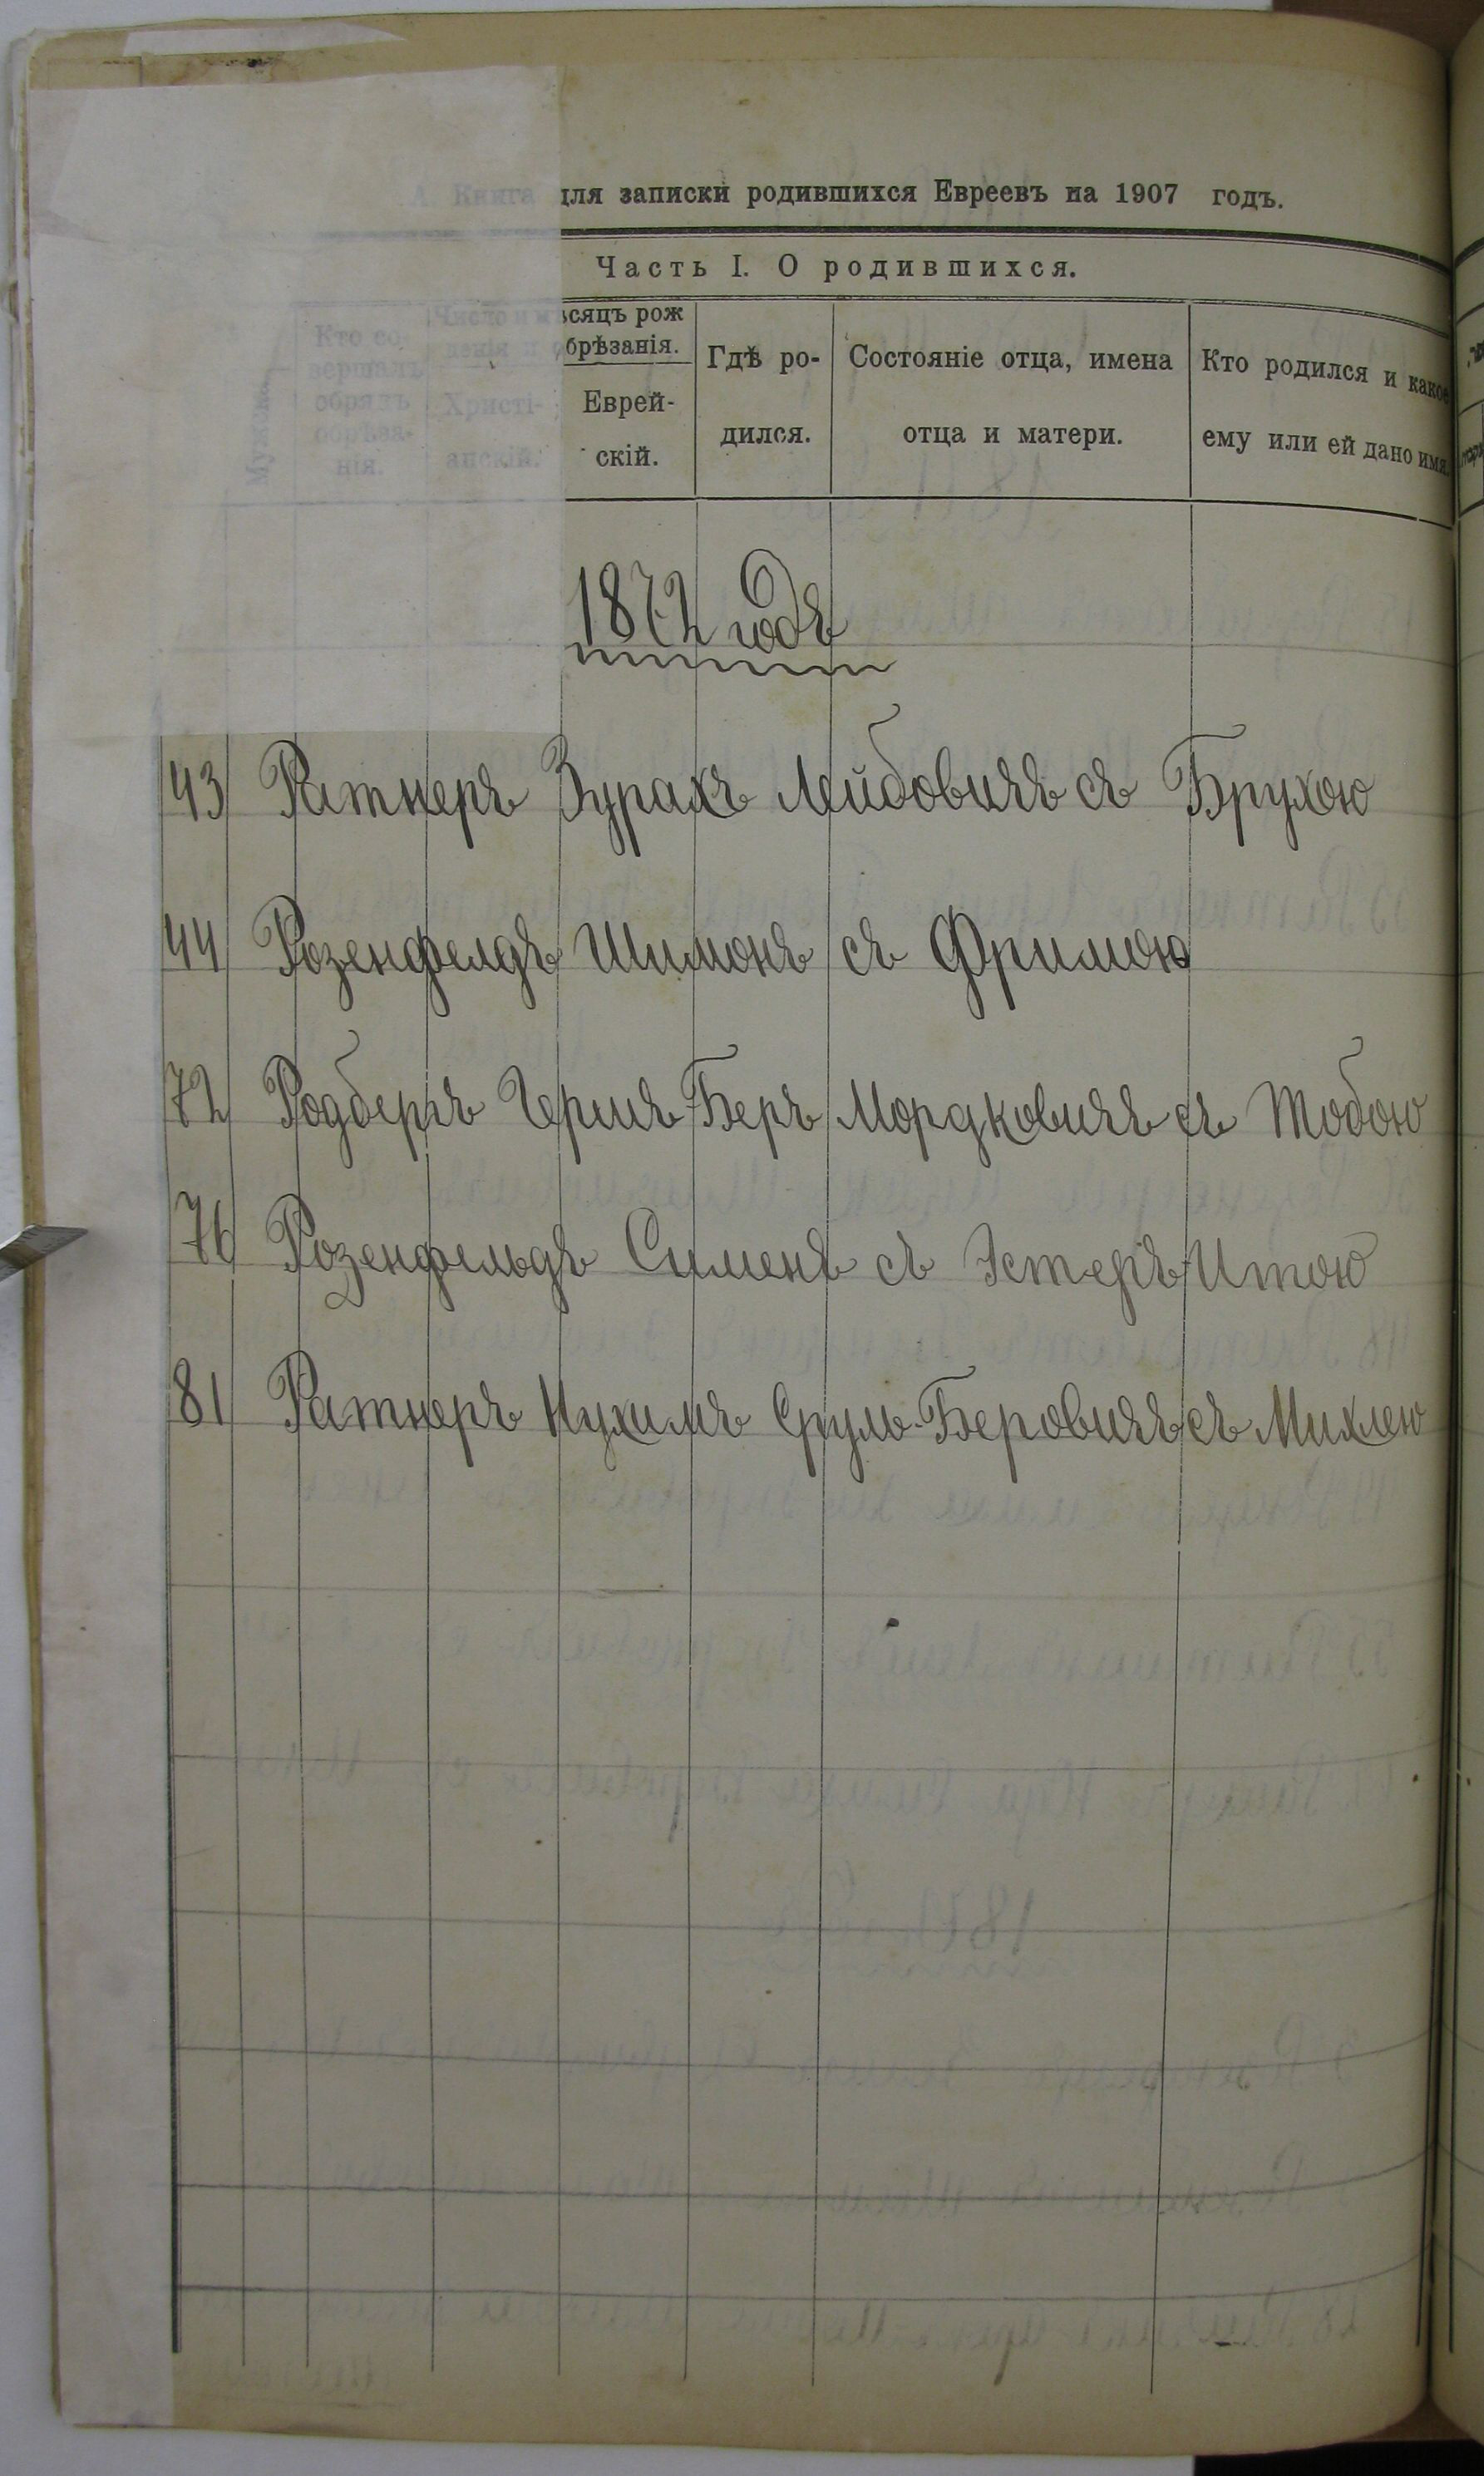 А. Книга для записки родившихся Евреевъ на 1907 годъ.
Часть I. О родившихся.
Мужско
Кто со-
вершалъ
обрядъ
обрѣза-
нія.
Число и мѣсяцъ рож
денія и обрѣзанія.
Христі-
анскій.
Еврей-
скій.
Гдѣ ро-
дился.
Состояніе отца, имена
отца и матери.
Кто родился и какое
ему или ей дано имя.
1872 годъ
43 Ратнеръ Зурахъ Лейбовичъ съ Брухою
44 Розенфелдъ Шимонъ съ Фримою
72 Родбергъ Гершъ-Беръ Мордковичъ съ Тобою
76 Розенфельдъ Сименъ съ Эстеръ-Итою
81 Ратнеръ Нухимъ Сруль-Беровичъ съ Михлею